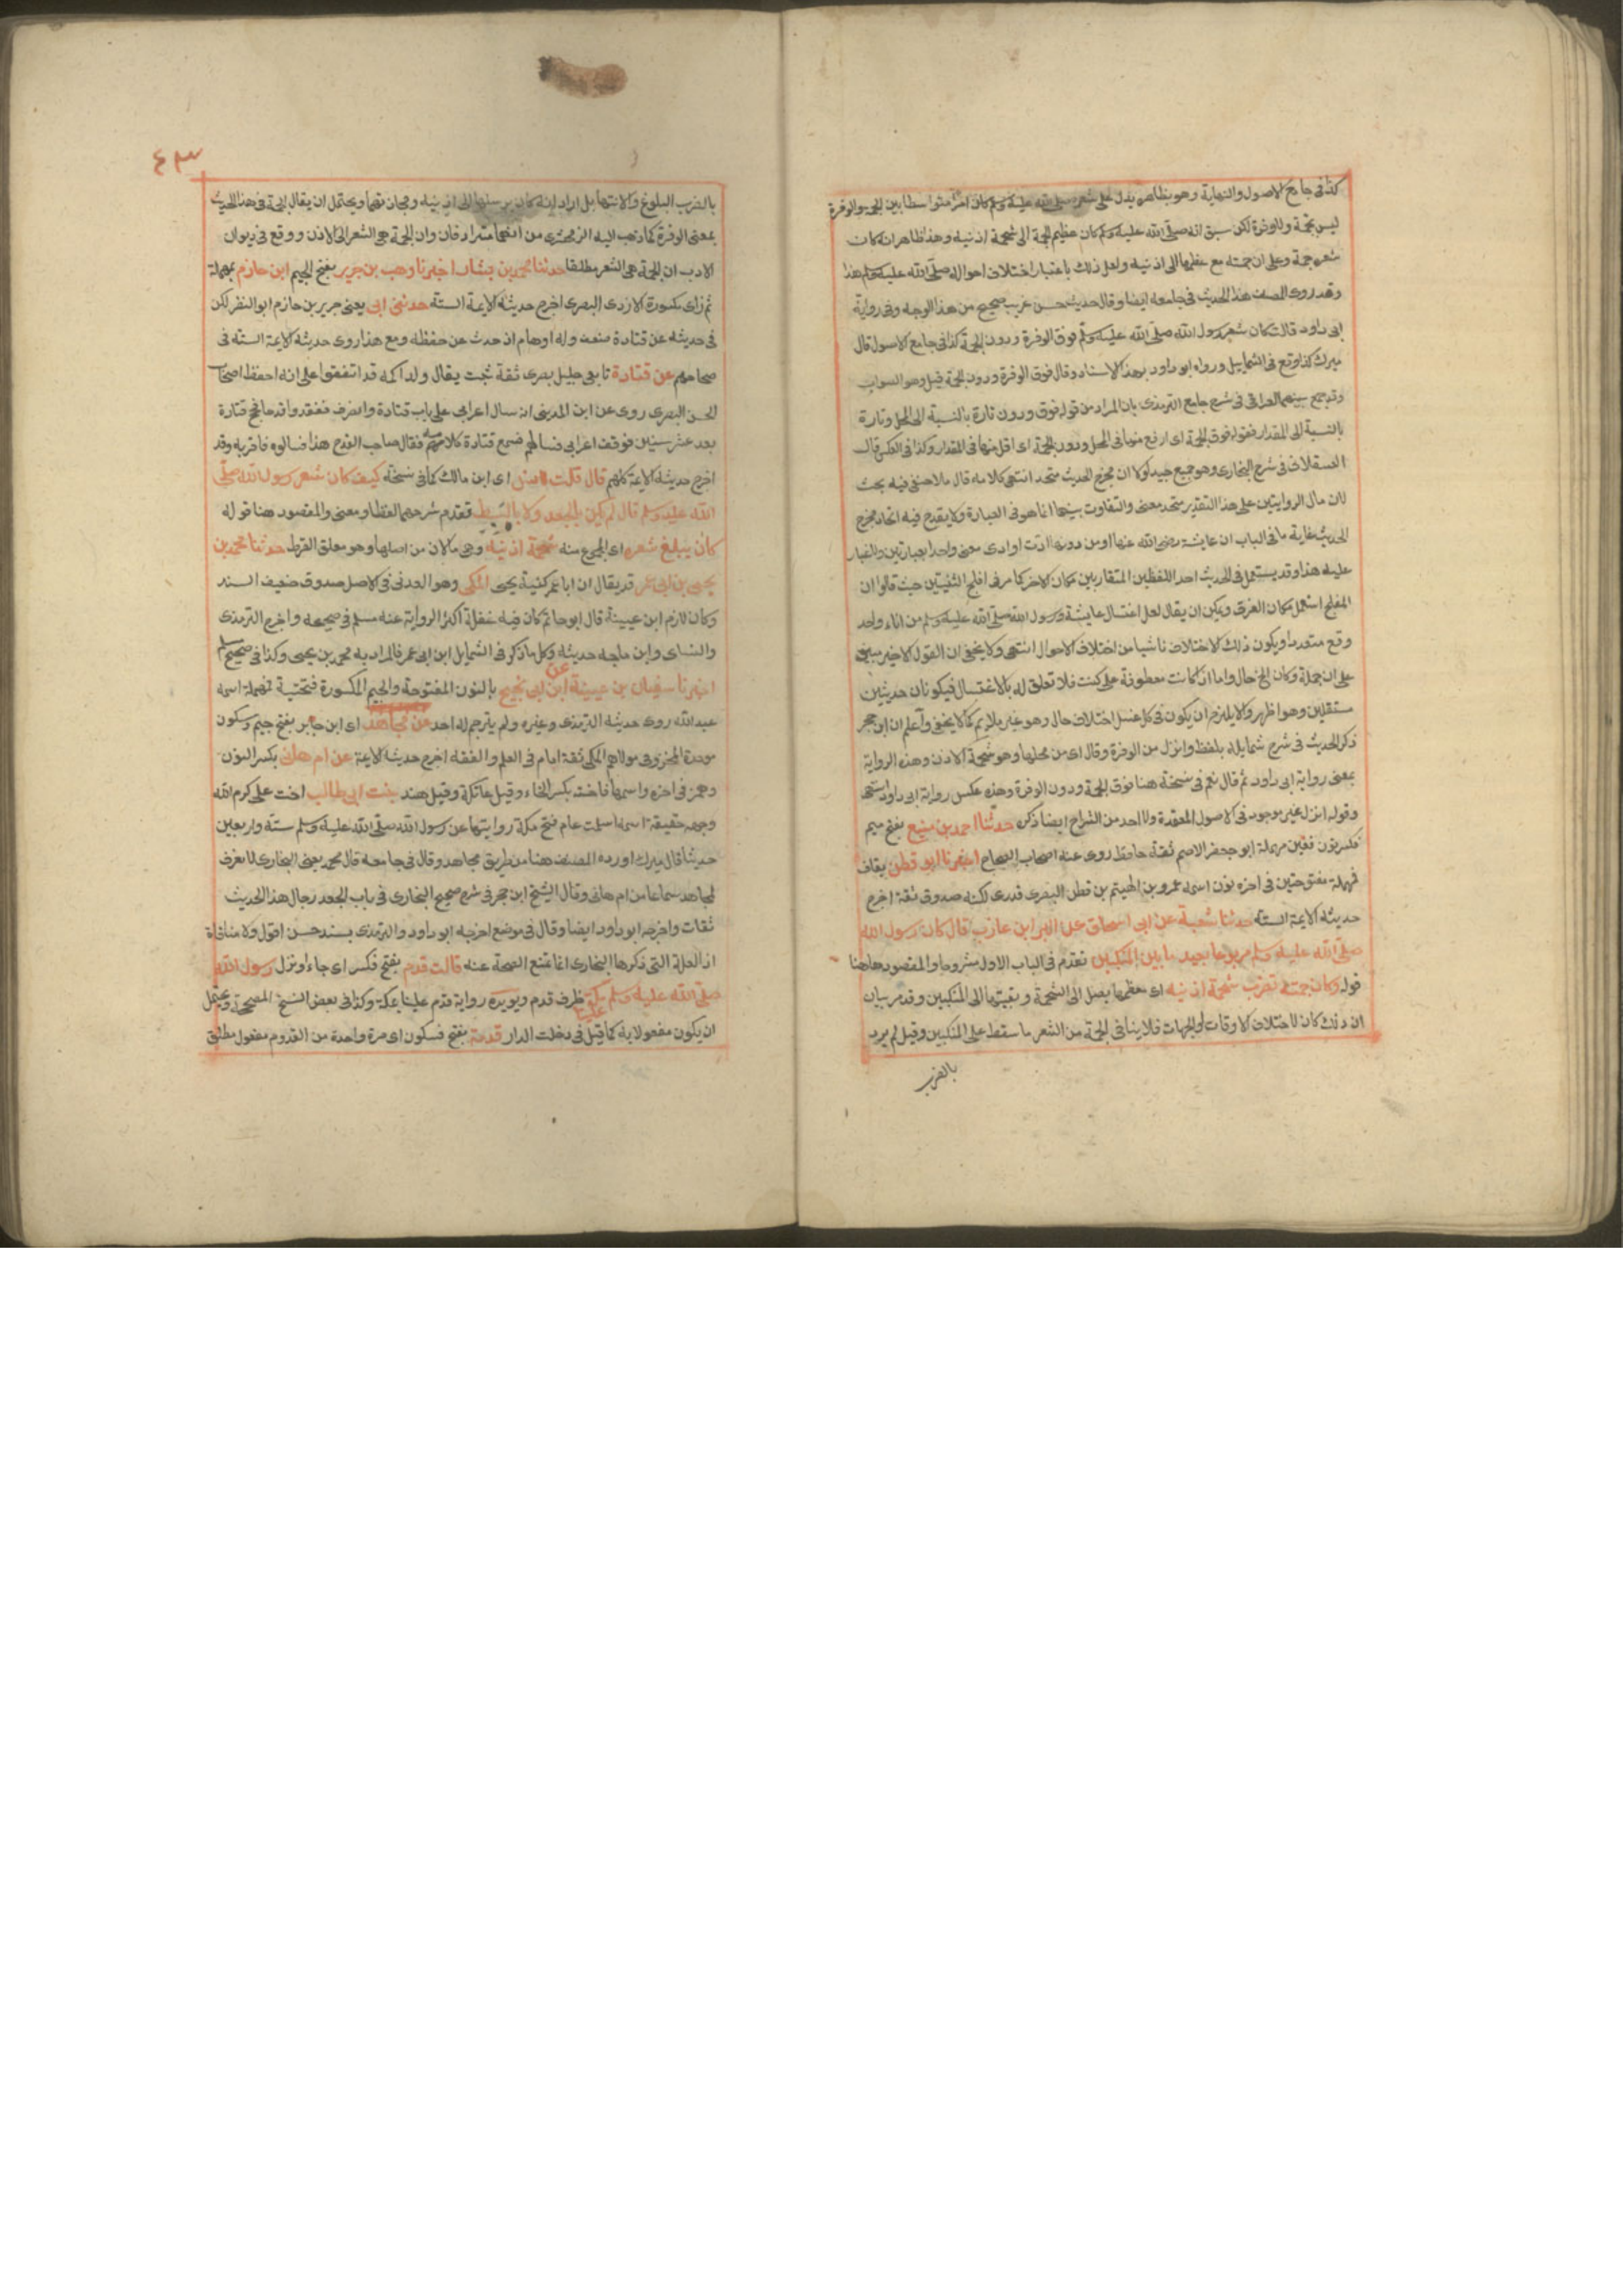 كذا في جامع الاصول والنهاية وهو بظاهره يدل على ان شعره صلى الله عليه وسلم كان امرا متوسطا بين الجمة والوفرة
ليس بجمة ولا وفرة لكن سبق انه صلى الله عليه وسلم كان عظيم الجمة الى شحمة اذنيه وهذا ظاهر انه كان
شعره جمة وعلى ان جمته مع عظمها الى اذنيه ولعل ذلك باعتبار اختلاف احواله صلى الله عليه وسلم هذا
وقد روى المصنف هذا الحديث في جامعه ايضا وقال حديث حسن غريب صحيح من هذا الوجه وفي رواية
ابي داود قالت كان شعر رسول الله صلى الله عليه وسلم فوق الوفرة ودون الجمة كذا في جامع الاصول قال
ميرك كذا وقع في الشمايل ورواه ابو داود بهذا الاسناد وقال فوق الوفرة ودون الجمة قيل وهو الصواب
وقد جمع بينهما العراقي في شرح جامع الترمذي بان المراد من قوله فوق ودون تارة بالنسبة الى المحل وتارة
بالنسبة الى المقدار فقوله فوق الجمة اي ارفع منها في المحل ودون الجمة اي اقل منها في المقدار وكذا في العكس قال
العسقلاني في شرح البخاري وهو جمع جيد لولا ان مخرج الحديث متحد انتهى كلامه قال ملا حنفي فيه بحث
لان مال الروايتين على هذا التقدير متحد معنى والتفاوت بينهما انما هو في العبارة ولا يقدح فيه اتحاد مخرج
الحديث غاية ما في الباب ان عايشة رضي الله عنها او من دونها ادت او ادى معنى واحدا بعبارتين ولا غبار
عليه هذا وقد يستعمل في الحديث احد اللفظين المتقاربين مكان الاخر كما مر في افلج الثنيتين حيث قالوا ان
المفلج استعمل مكان الفرق ويمكن ان يقال لعل اغتسال عايشة ورسول الله صلى الله عليه وسلم من اناء واحد
وقع متعددا ويكون ذلك الاختلاف ناشيا من اختلاف الاحوال انتهى ولا يخفى ان القول الاخير مبني
على ان جملة وكان الخ حال واما اذا كانت معطوفة على كنت فلا تعلق له بالاغتسال فيكونان حديثين
مستقلين وهو اظهر ولا يلزم ان يكون في كل غسل اختلاف حال وهو غير ملايم كما لا يخفى واعلم ان ابن حجر
ذكر الحديث في شرح شمايله بلفظ وانزل من الوفرة وقال اي من محلها وهو شحمة الاذن وهذه الرواية
بمعنى رواية ابي داود ثم قال نعم في نسخة هنا فوق الجمة ودون الوفرة وهذه عكس رواية ابي داود انتهى
وقوله انزل غير موجود في الاصول المعتمدة ولا احد من الشراح ايضا ذكره حدثنا احمد بن منيع بفتح ميم
فكسر نون فعين مهملة ابو جعفر الاصم ثقة حافظ روى عنه اصحاب الصحاح اخبرنا ابو قطن بقاف
فمهملة مفتوحتين في اخره نون اسمه عمرو بن الهيثم بن قطن البصري قدري لكنه صدوق ثقة اخرج
حديثه الايمة الستة حدثنا شعبة عن ابي اسحاق عن البراء بن عازب قال كان رسول الله
صلى الله عليه وسلم مربوعا بعيد ما بين المنكبين تقدم في الباب الاول مشروحا والمقصود هاهنا
قوله وكان جمته تضرب شحمة اذنيه اي معظمها يصل الى الشحمة وبقيتها الى المنكبين وقد مر بيان
ان ذلك كان لاختلاف الاوقات او الجهات فلا ينافي الجمة من الشعر ما سقط على المنكبين وقيل لم يرد
بالضرب
٤٣
بالضرب البلوغ والانتهاء بل اراد انه كان يرسلها الى اذنيه ويحتمل ان يقال الجمة في هذا الحديث
بمعنى الوفرة كما ذهب اليه الزمخشري من انهما مترادفان وان الجمة هي الشعر الى الاذن ووقع في ديوان
الادب ان الجمة هي الشعر مطلقا حدثنا محمد بن بشار اخبرنا وهب بن جرير بفتح الجيم ابن حازم بمهملة
ثم زاي مكسورة الازدي البصري اخرج حديثه الايمة الستة حدثني ابي يعني جرير بن حازم ابو النضر لكن
في حديثه عن قتادة ضعف وله اوهام اذ حدث من حفظه ومع هذا روى حديثه الايمة الستة في
صحاحهم عن قتادة تابعي جليل بصري ثقة ثبت يقال ولد اكمه قد اتفقوا على انه احفظ اصحاب
الحسن البصري روي عن ابن المديني انه سال اعرابي على باب قتادة وانصرف ففقدوا قدحا فحج قتادة
بعد عشر سنين فوقف اعرابي فسالهم فسمع قتادة كلامه فقال صاحب القدح هذا فسالوه فاقر به وقد
اخرج حديثه الايمة كلهم قال قلت لانس اي ابن مالك كما في نسخة كيف كان شعر رسول الله صلى
الله عليه وسلم قال لم يكن بالجعد ولا بالسبط تقدم شرحهما لفظا ومعنى والمقصود هنا قوله
كان يبلغ شعره اي المجموع منه شحمة اذنيه وهي ما لان من اصلها وهو معلق القرط حدثنا محمد بن
يحيى بن ابي عمر قد يقال ان ابا عمر كنية يحيى المكي وهو العدني في الاصل صدوق صنف المسند
وكان لازم ابن عيينة قال ابو حاتم كان فيه غفلة اكثر الرواية عنه مسلم في صحيحه واخرج الترمذي
والنساي وابن ماجه حديثه وكل ما ذكر في الشمايل ابن ابي عمر فالمراد به محمد بن يحيى وكذا في صحيح مسلم
اخبرنا سفيان بن عيينة عن ابن ابي نجيح بالنون المفتوحة والجيم المكسورة فتحتية فمهملة اسمه
عبد الله روى حديثه الترمذي وغيره ولم يترجم له احد عن مجاهد اي ابن جابر بفتح جيم وسكون
موحدة المخزومي مولاهم المكي ثقة امام في العلم والفقه اخرج حديثه الايمة عن ام هانئ بكسر النون
وهمز في اخره واسمها فاخته بكسر الخاء وقيل عاتكة وقيل هند بنت ابي طالب اخت علي كرم الله
وجهه حقيقة اسلمت عام فتح مكة روايتها عن رسول الله صلى الله عليه وسلم ستة واربعين
حديثا قال ميرك اورده المصنف هنا من طريق مجاهد وقال في جامعه قال محمد يعني البخاري لا نعرف
لمجاهد سماعا من ام هاني وقال الشيخ ابن حجر في شرح صحيح البخاري في باب الجعد رجال هذا الحديث
ثقات واخرجه ابو داود ايضا وقال في موضع اخرجه ابو داود والترمذي بسند حسن اقول ولا منافاة
اذ العلة التي ذكرها البخاري انما تمنع الصحة عنه قالت قدم بفتح فكسر اي جاء او نزل رسول الله
صلى الله عليه وسلم علينا مكة ظرف قدم ويويده رواية قدم علينا بمكة وكذا في بعض النسخ المصححة ويحتمل
ان يكون مفعولا به كما قيل في دخلت الدار قدمة بفتح فسكون اي مرة واحدة من القدوم مفعول مطلق